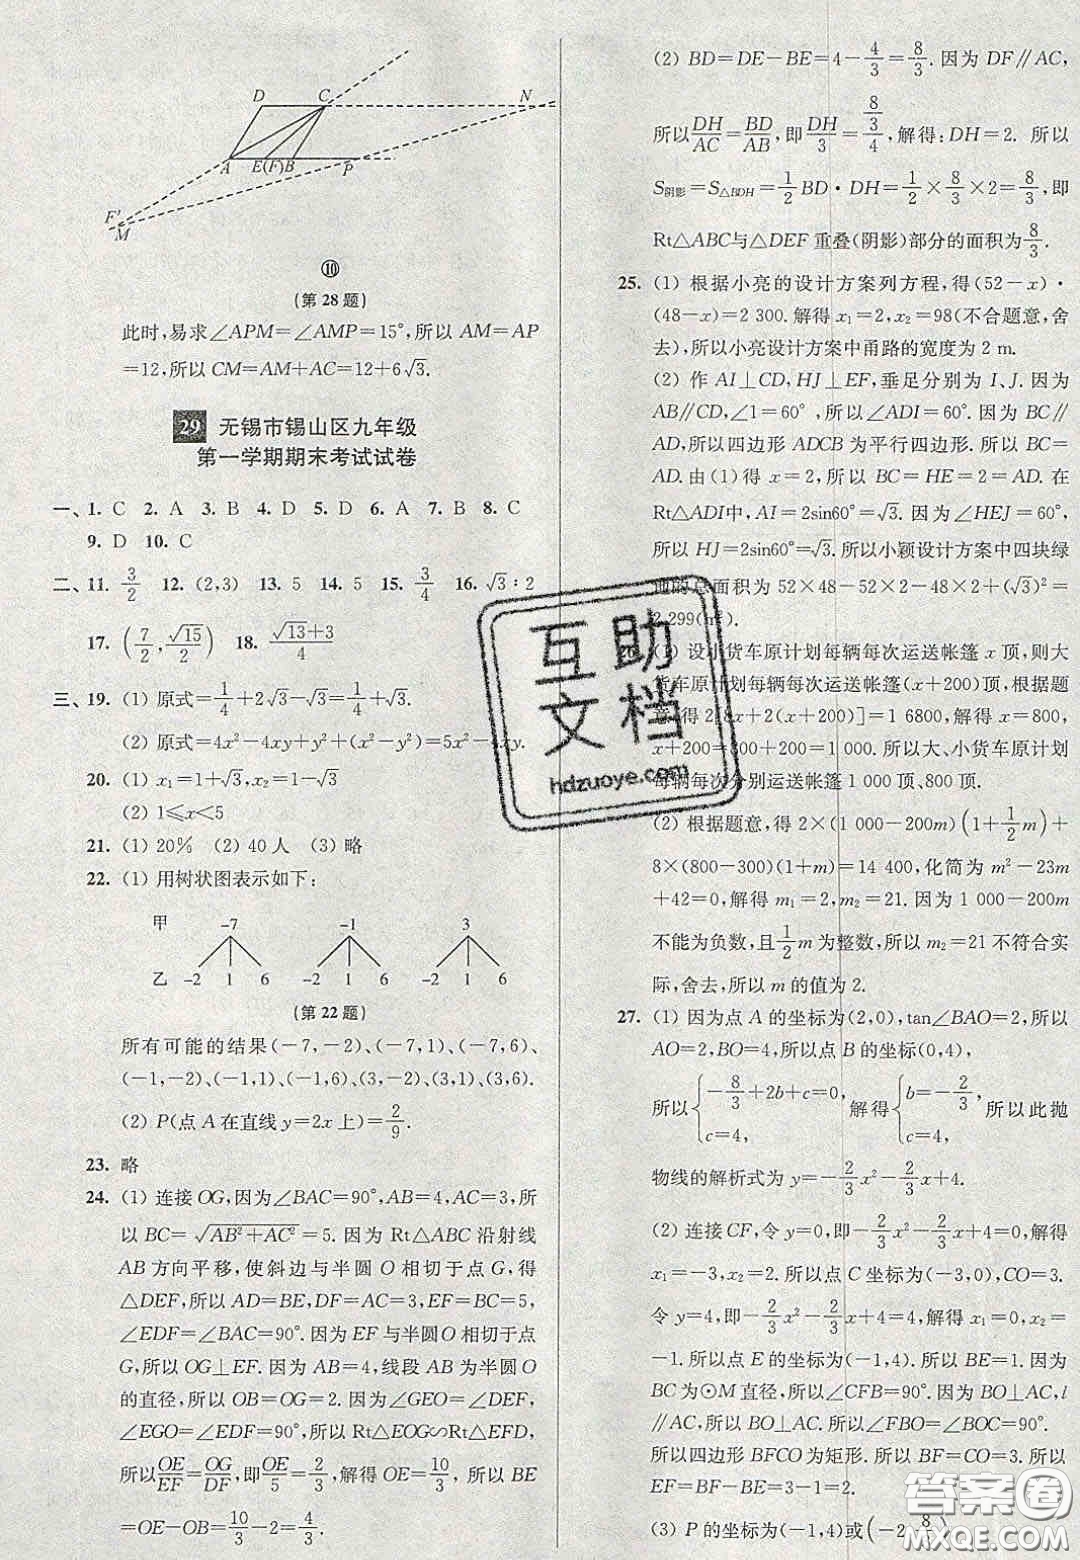 D C N
A E(F) B P
F′
M
⑩
(第 28 题)
此时,易求∠APM=∠AMP=15°,所以 AM=AP
=12,所以 CM=AM+AC=12+6√3.
29 无锡市锡山区九年级
第一学期期末考试试卷
一、1. C 2. A 3. B 4. D 5. D 6. A 7. B 8. C
9. D 10. C
二、11. 3/2 12. (2,3) 13. 5 14. 5 15. 3/4 16. √3∶2
17. (7/2, √15/2) 18. (√13+3)/4
三、19. (1) 原式=1/4+2√3-√3=1/4+√3.
(2) 原式=4x²-4xy+y²+(x²-y²)=5x²-4xy.
20. (1) x₁=1+√3,x₂=1-√3
(2) 1≤x<5
21. (1) 20% (2) 40 人 (3) 略
22. (1) 用树状图表示如下:
甲 -7 -1 3
乙 -2 1 6 -2 1 6 -2 1 6
(第 22 题)
所有可能的结果(-7,-2)、(-7,1)、(-7,6)、
(-1,-2)、(-1,1)、(-1,6)、(3,-2)、(3,1)、(3,6).
(2) P(点 A 在直线 y=2x 上)=2/9.
23. 略
24. (1) 连接 OG,因为∠BAC=90°,AB=4,AC=3,所
以 BC=√(AB²+AC²)=5. 因为 Rt△ABC 沿射线
AB 方向平移,使斜边与半圆 O 相切于点 G,得
△DEF,所以 AD=BE,DF=AC=3,EF=BC=5,
∠EDF=∠BAC=90°. 因为 EF 与半圆 O 相切于点
G,所以 OG⊥EF. 因为 AB=4,线段 AB 为半圆 O
的直径,所以 OB=OG=2. 因为∠GEO=∠DEF,
∠EGO=∠EDF=90°. 所以 Rt△EOG∽Rt△EFD,
所以OE/EF=OG/DF,即OE/5=2/3,解得 OE=10/3,所以 BE
=OE-OB=10/3-2=4/3.
(2) BD=DE-BE=4-4/3=8/3.因为 DF∥AC,
所以DH/AC=BD/AB,即DH/3=(8/3)/4,解得:DH=2. 所以
S阴影=S△BDH=1/2 BD·DH=1/2×8/3×2=8/3,即
Rt△ABC与△DEF 重叠(阴影)部分的面积为8/3.
25. (1) 根据小亮的设计方案列方程,得(52-x)·
(48-x)=2 300.解得 x₁=2,x₂=98(不合题意,舍
去),所以小亮设计方案中甬路的宽度为 2 m.
(2) 作 AI⊥CD,HJ⊥EF,垂足分别为 I、J. 因为
AB∥CD,∠1=60°,所以∠ADI=60°. 因为 BC∥
AD,所以四边形 ADCB 为平行四边形. 所以 BC=
AD. 由(1)得 x=2,所以 BC=HE=2=AD. 在
Rt△ADI中,AI=2sin60°=√3. 因为∠HEJ=60°,
所以 HJ=2sin60°=√3. 所以小颖设计方案中四块绿
地的总面积为 52×48-52×2-48×2+(√3)²=
2 299(m²).
26. (1) 设小货车原计划每辆每次运送帐篷 x 顶,则大
货车原计划每辆每次运送帐篷(x+200)顶,根据题
意,得 2[8x+2(x+200)]=1 6800,解得 x=800,
x+200=800+200=1 000. 所以大、小货车原计划
每辆每次分别运送帐篷 1 000 顶、800 顶.
(2) 根据题意,得 2×(1 000-200m)(1+1/2 m)+
8×(800-300)(1+m)=14 400,化简为 m²-23m
+42=0,解得 m₁=2,m₂=21. 因为 1 000-200m
不能为负数,且1/2 m 为整数,所以 m₂=21 不符合实
际,舍去,所以 m 的值为 2.
27. (1) 因为点 A 的坐标为(2,0),tan∠BAO=2,所以
AO=2,BO=4,所以点 B 的坐标(0,4),
所以{-8/3+2b+c=0, c=4, 解得{b=-2/3, c=4, 所以此抛
物线的解析式为 y=-2/3x²-2/3x+4.
(2) 连接 CF,令 y=0,即-2/3x²-2/3x+4=0,解得
x₁=-3,x₂=2. 所以点 C 坐标为(-3,0),CO=3.
令 y=4,即-2/3x²-2/3x+4=4,解得 x₁=0,x₂=
-1. 所以点 E 的坐标为(-1,4). 所以 BE=1. 因为
BC 为⊙M 直径,所以∠CFB=90°. 因为 BO⊥AC,l
∥AC,所以 BO⊥AC. 所以∠FBO=∠BOC=90°.
所以四边形 BFCO 为矩形. 所以 BF=CO=3. 所以
EF=BF-BE=3-1=2.
(3) P 的坐标为(-1,4)或(-2 8
互助
文档
hdzuoye.com
答案圈
MXQE.COM